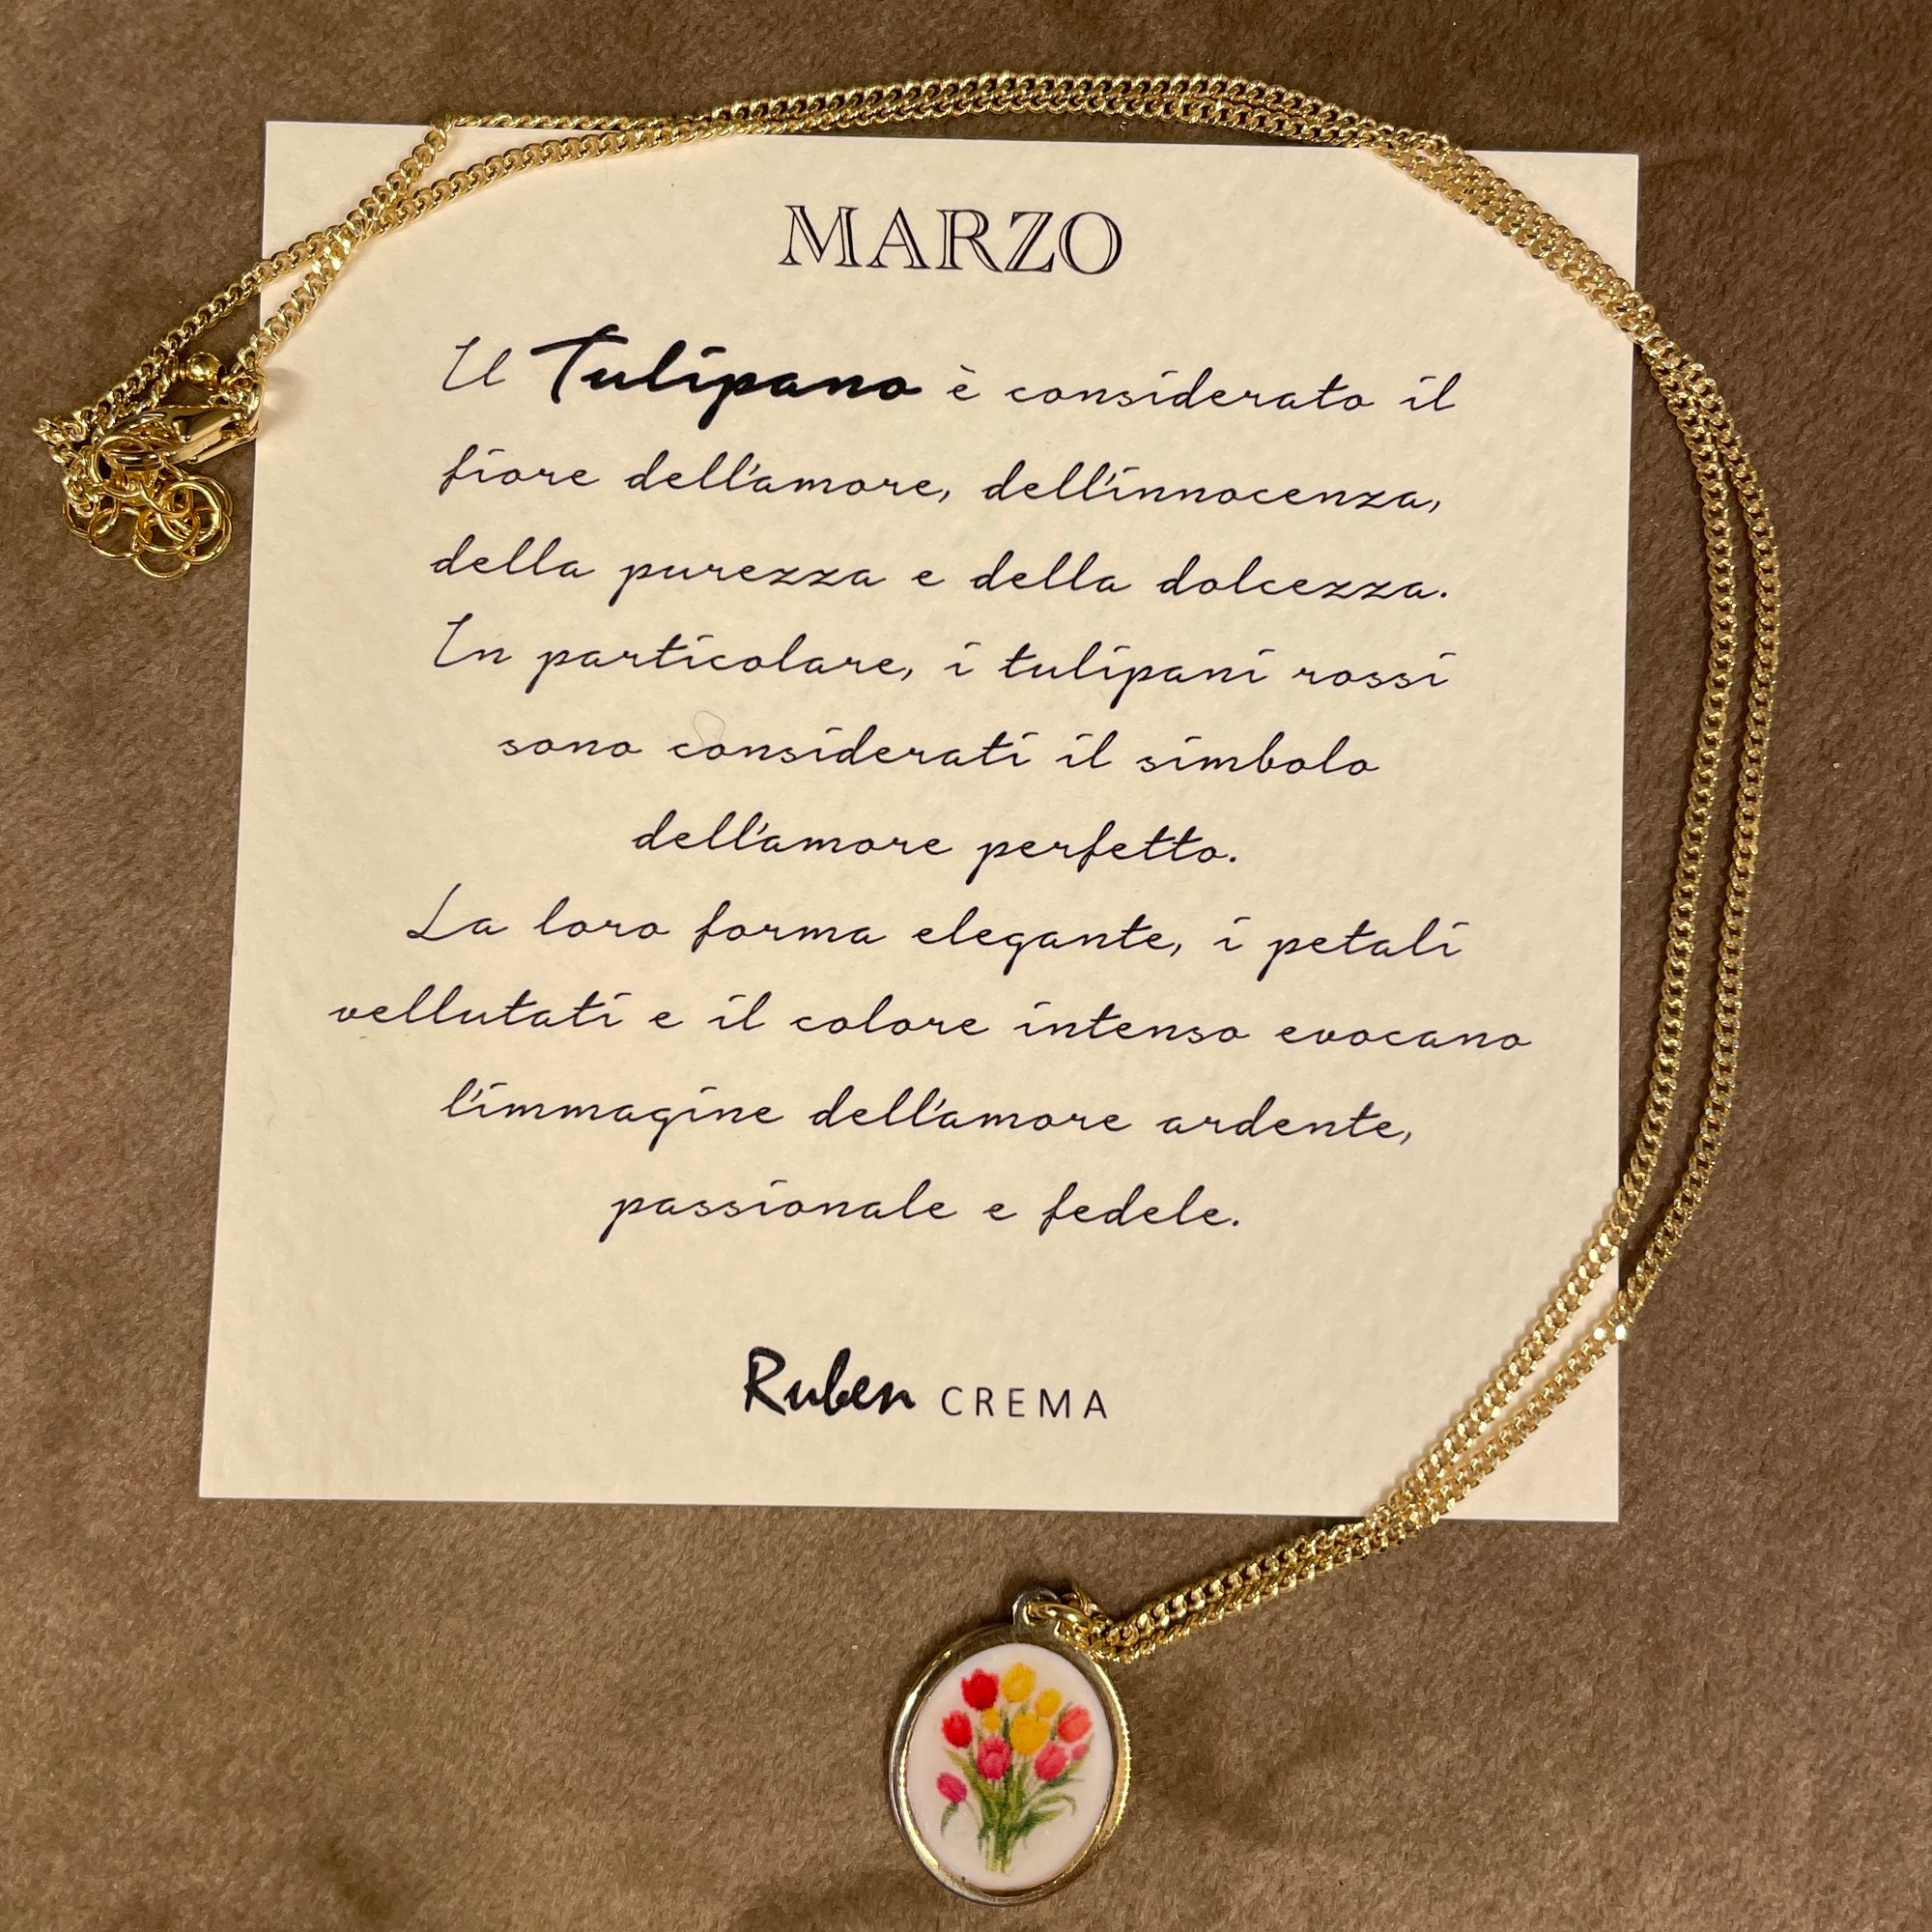 MARZO
Il Tulipano è considerato il
fiore dell'amore, dell'innocenza,
della purezza e della dolcezza.
In particolare, i tulipani rossi
sono considerati il simbolo
dell'amore perfetto.
La loro forma elegante, i petali
vellutati e il colore intenso evocano
l'immagine dell'amore ardente,
passionale e fedele.
Ruben CREMA